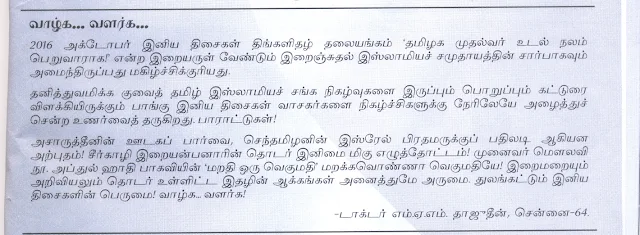 வாழ்க... வளர்க...
2016 அக்டோபர் இனிய திசைகள் திங்களிதழ் தலையங்கம் 'தமிழக முதல்வர் உடல் நலம்
பெறுவாராக!' என்ற இறையருள் வேண்டும் இறைஞ்சுதல் இஸ்லாமியச் சமுதாயத்தின் சார்பாகவும்
அமைந்திருப்பது மகிழ்ச்சிக்குரியது.
தனித்துவமிக்க குவைத் தமிழ் இஸ்லாமியச் சங்க நிகழ்வுகளை இருப்பும் பொறுப்பும் கட்டுரை
விளக்கியிருக்கும் பாங்கு இனிய திசைகள் வாசகர்களை நிகழ்ச்சிகளுக்கு நேரிலேயே அழைத்துச்
சென்ற உணர்வைத் தருகிறது. பாராட்டுகள்!
அசாருத்தீனின் ஊடகப் பார்வை, செந்தமிழனின் இஸ்ரேல் பிரதமருக்குப் பதிலடி ஆகியன
அற்புதம்! சீர்காழி இறையன்பனாரின் தொடர் இனிமை மிகு எழுத்தோட்டம்! முனைவர் மௌலவி
நூ. அப்துல் ஹாதி பாகவியின் 'மறதி ஒரு வெகுமதி' மறக்கவொண்ணா வெகுமதியே! இறைமறையும்
அறிவியலும் தொடர் உள்ளிட்ட இதழின் ஆக்கங்கள் அனைத்துமே அருமை. துலங்கட்டும் இனிய
திசைகளின் பெருமை! வாழ்க... வளர்க!
-டாக்டர் எம்.ஏ.எம். தாஜுதீன், சென்னை-64.